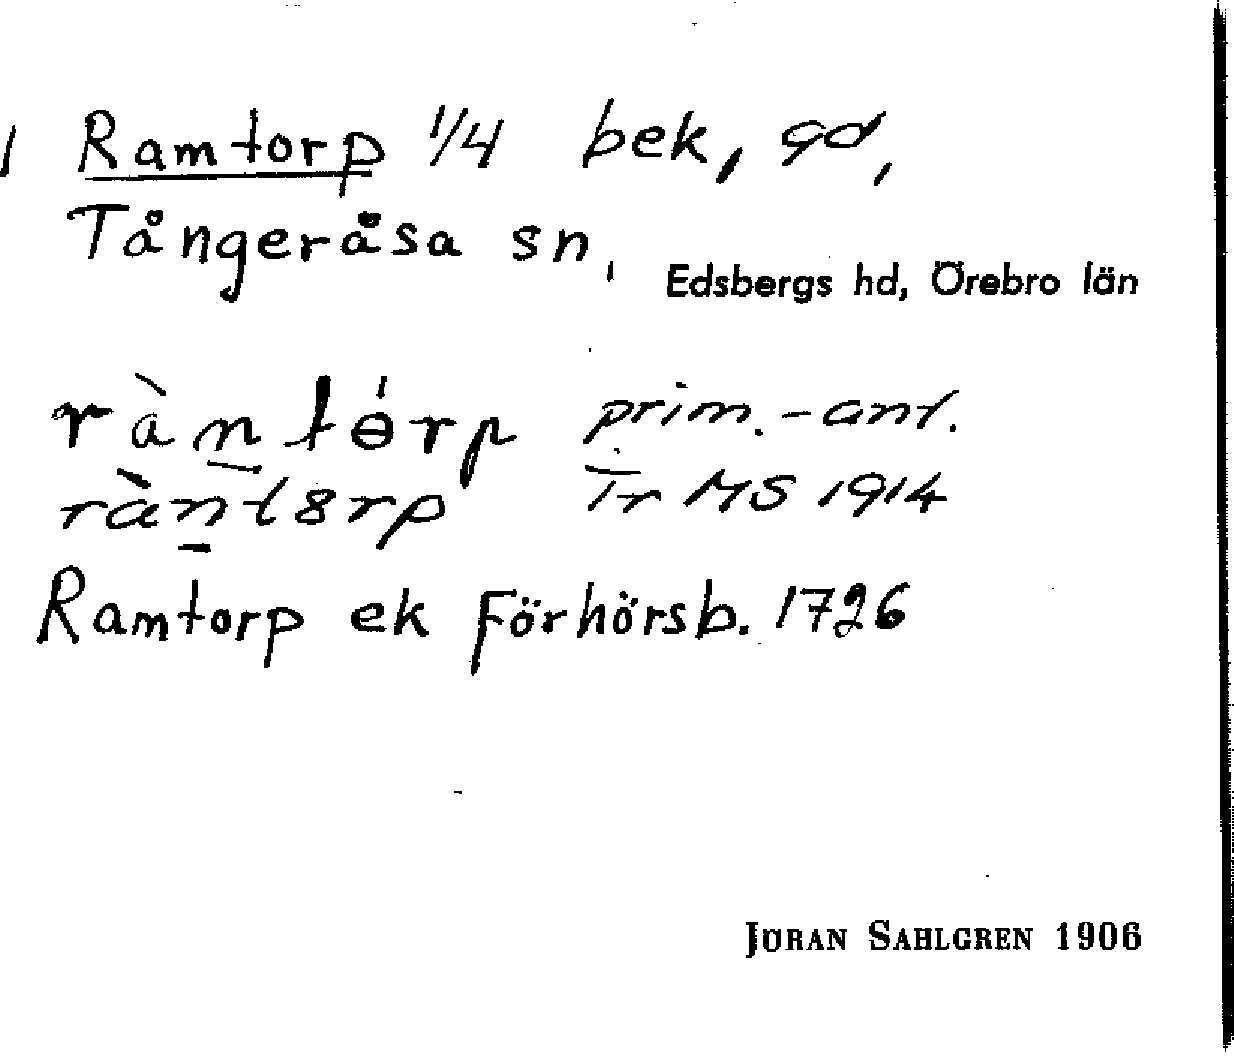 Ramtorp 1/4 bek, gd,
Tångeråsa sn,
Edsbergs hd, Örebro län
ràntɵ́rp prim.-ant.
rànt8rp Tr MS 1914
Ramtorp ek Förhörsb. 1726
JÖRAN SAHLGREN 1906